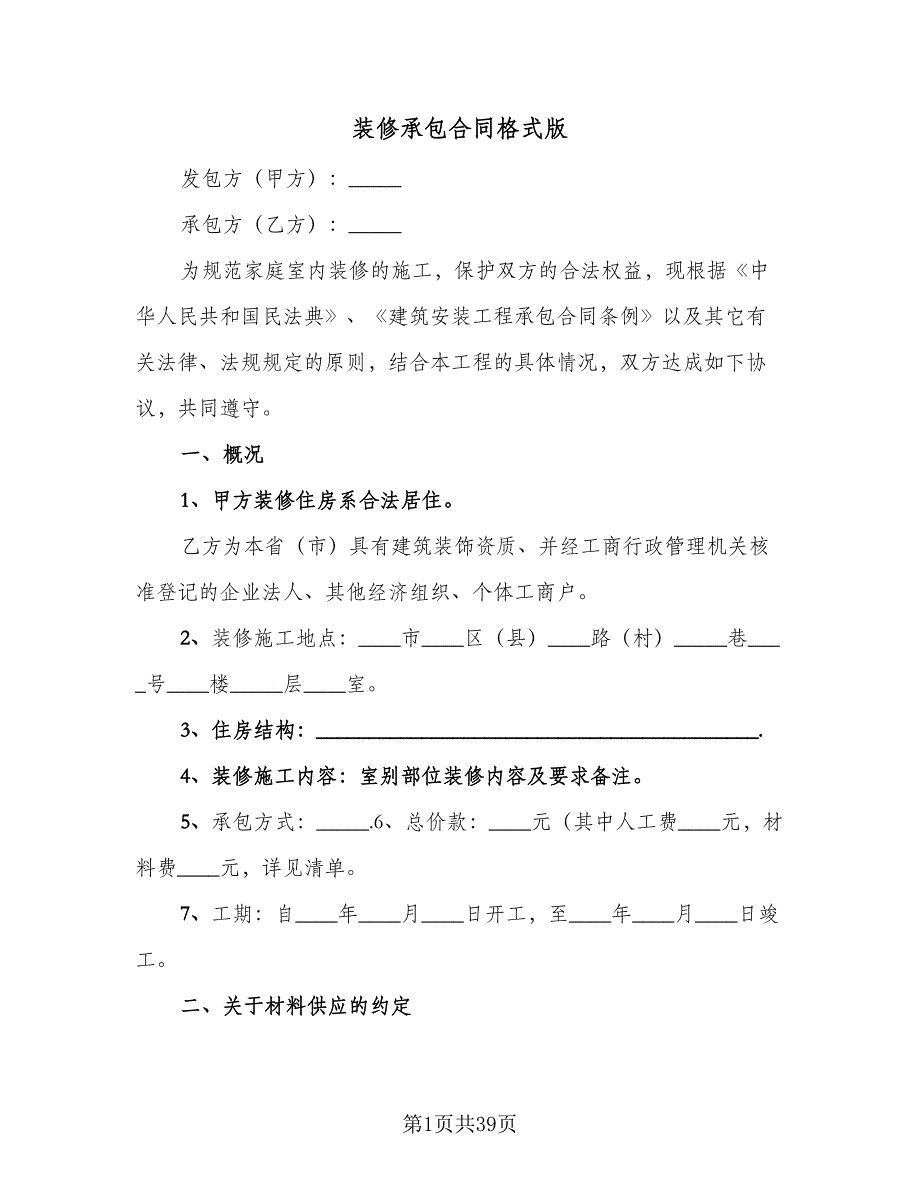 装修承包合同格式版
发包方（甲方）：_____
承包方（乙方）：_____
为规范家庭室内装修的施工，保护双方的合法权益，现根据《中
华人民共和国民法典》、《建筑安装工程承包合同条例》以及其它有
关法律、法规规定的原则，结合本工程的具体情况，双方达成如下协
议，共同遵守。
一、概况
1、甲方装修住房系合法居住。
乙方为本省（市）具有建筑装饰资质、并经工商行政管理机关核
准登记的企业法人、其他经济组织、个体工商户。
2、装修施工地点：____市____区（县）____路（村）_____巷___
_号____楼_____层____室。
3、住房结构：__________________________________________.
4、装修施工内容：室别部位装修内容及要求备注。
5、承包方式：_____.6、总价款：____元（其中人工费____元，材
料费____元，详见清单。
7、工期：自____年____月____日开工，至____年____月____日竣
工。
二、关于材料供应的约定
第1页共39页